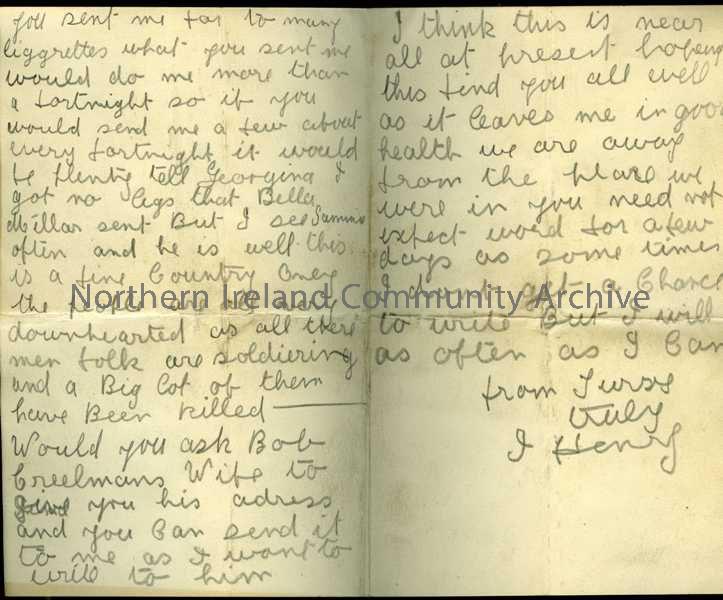 you sent me far to many
Ciggrettes what you sent me
would do me more than
a fortnight so if you
would send me a few about
every fortnight it would
be plenty tell Georgina I
got no Cigs that Bella
Millar sent But I see Sammie
often and he is well this
is a fine Country Oney
the people are all very
downhearted as all there
men folk are soldiering
and a Big Lot of them
have Been killed
Would you ask Bob
Creelmans Wife to
give you his adress
and you Can send it
to me as I want to
write to him
I think this is near
all at present hopeing
this find you all well
as it leaves me in good
health we are away
from the place we
were in you need not
expect word for a few
days as some times
I dount get a Chance
to write But I will
as often as I Can
from yurs
truly
J Henry
Northern Ireland Community Archive